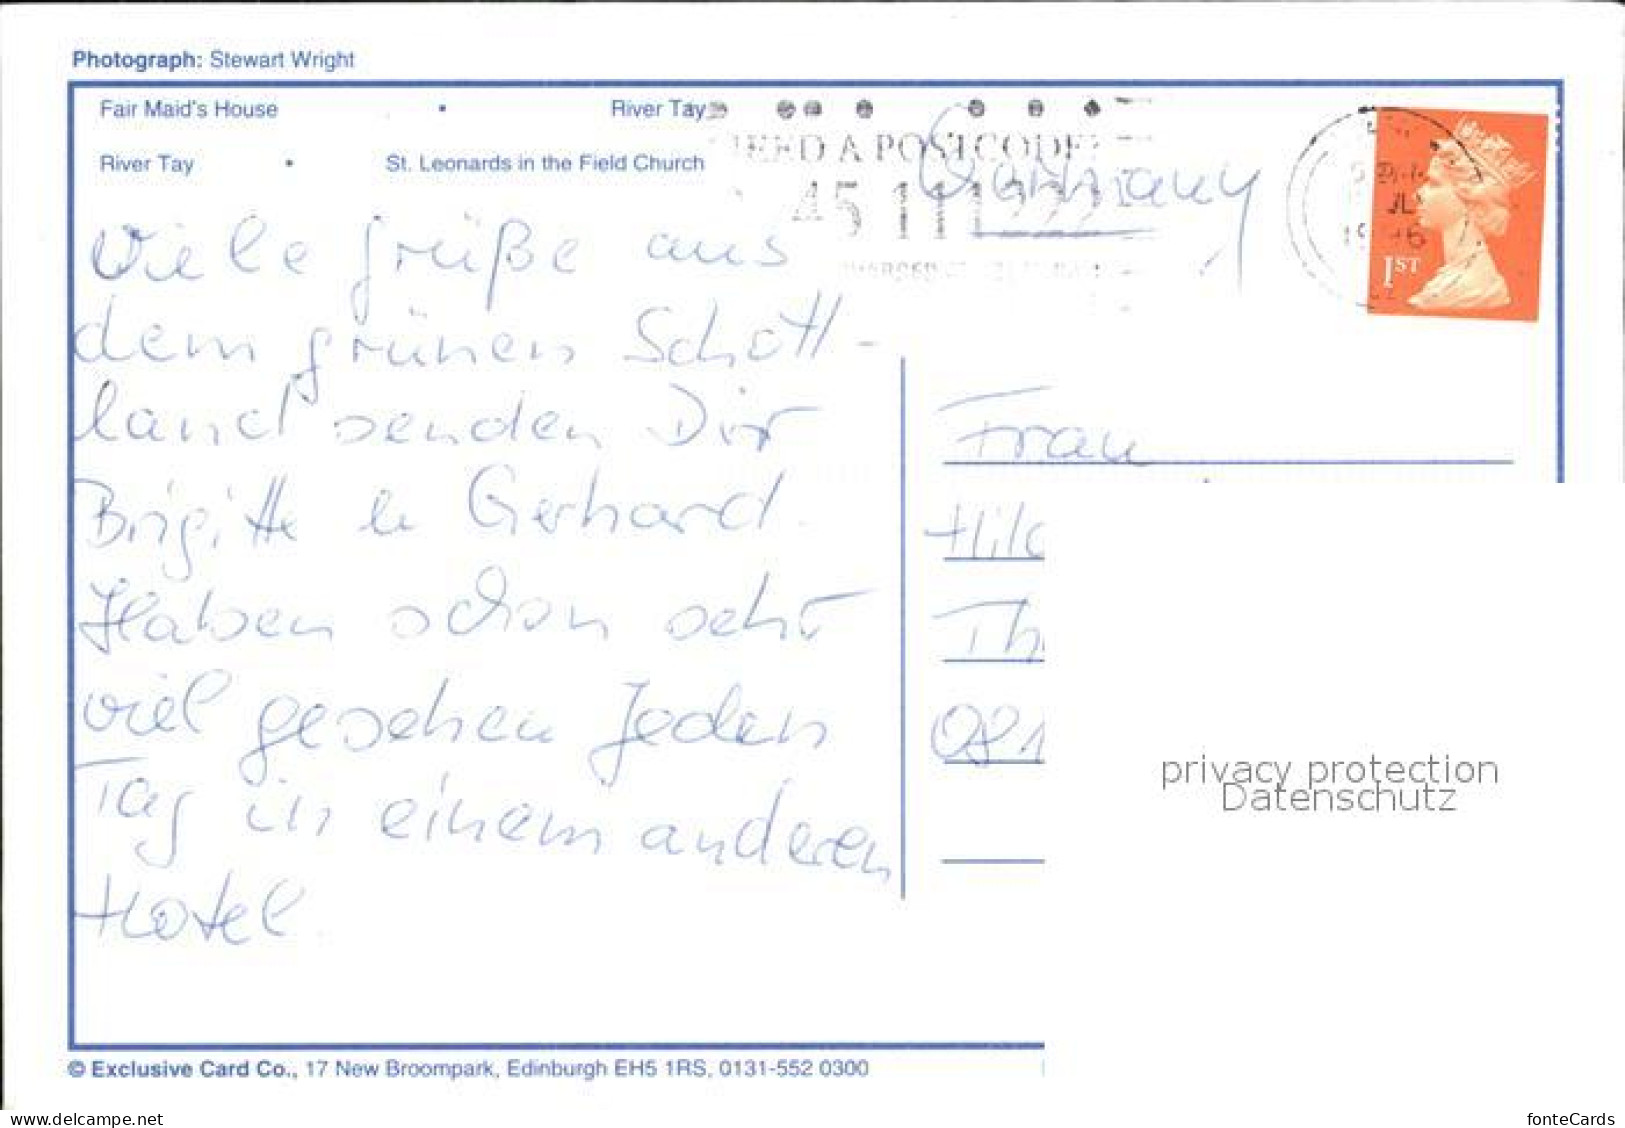 Photograph: Stewart Wright
Fair Maid's House • River Tay
River Tay • St. Leonards in the Field Church
NEED A POSTCODE?
45 111222
Germany
1ST
Viele Grüße aus
dem grünen Schott-
land senden Dir
Brigitte u Gerhard.
Haben schon sehr
viel gesehen Jeden
Tag in einem anderen
Hotel.
Frau
Hild
Th
081
privacy protection
Datenschutz
© Exclusive Card Co., 17 New Broompark, Edinburgh EH5 1RS, 0131-552 0300
www.delcampe.net
fonteCards